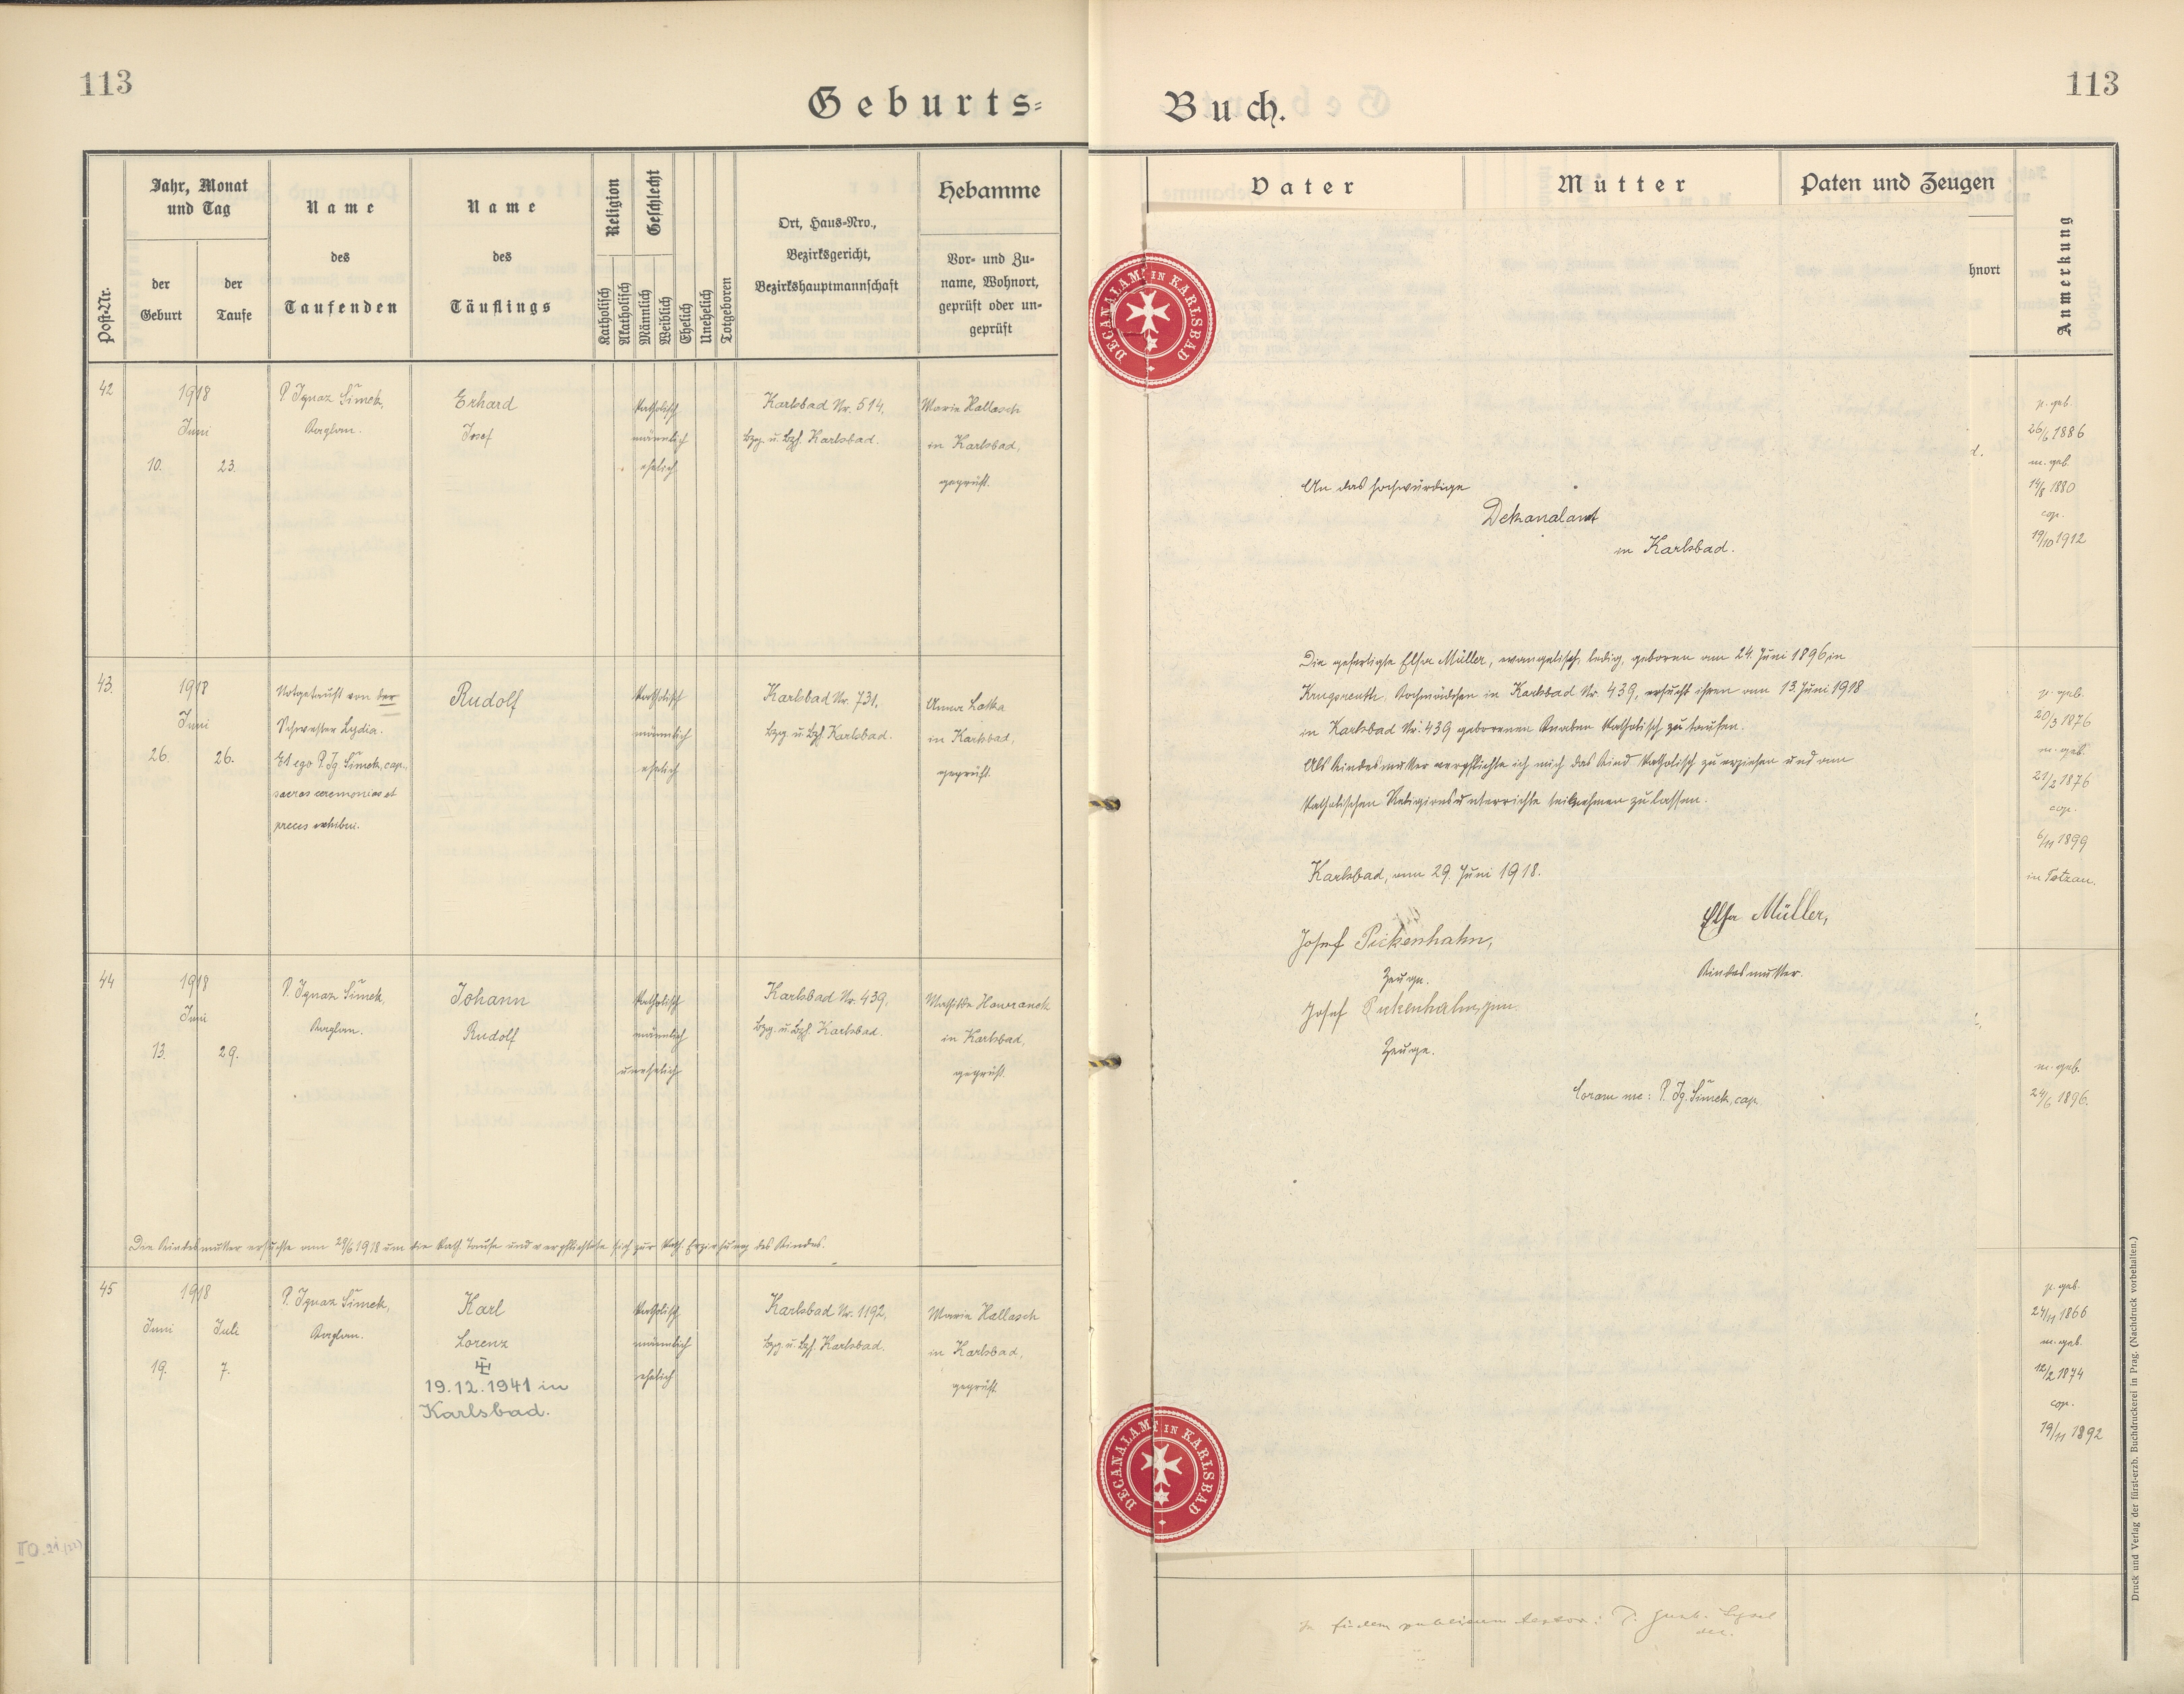 113
Geburts=
Post-Nr.
Jahr, Monat
und Tag
der
Geburt
der
Taufe
Name
des
Taufenden
Name
des
Täuflings
Religion
Katholisch
Akatholisch
Geschlecht
Männlich
Weiblich
Ehelich
Unehelich
Totgeboren
Ort, Haus=Nro.,
Bezirksgericht,
Bezirkshauptmannschaft
Hebamme
Vor- und Zu-
name, Wohnort,
geprüft oder un-
geprüft
42
1918
Juni
10. 23.
P. Ignaz Šimek,
Kaplan.
Erhard
Josef
katholisch
männlich
ehelich
Karlsbad Nr. 514,
Bzg. u. Bzh. Karlsbad.
Marie Hallasch
in Karlsbad,
geprüft.
43.
1918
Juni
26. 26.
Notgetauft von der
Schwester Lydia.
Et ego P. Ig. Šimek, cap.,
sacras ceremonias et
preces exhibui.
Rudolf
katholisch
männlich
ehelich
Karlsbad Nr. 731,
Bzg. u. Bzh. Karlsbad.
Anna Lotka
in Karlsbad,
geprüft.
44
1918
Juni
13. 29.
P. Ignaz Šimek,
Kaplan.
Johann
Rudolf
katholisch
männlich
unehelich
Karlsbad Nr. 439,
Bzg. u. Bzh. Karlsbad.
Mathilde Hawranek
in Karlsbad,
geprüft.
Die Kindesmutter ersuchte am 29/6 1918 um die kath. Taufe und verpflichtete sich zur kath. Erziehung des Kindes.
45
1918
Juni Juli
19. 7.
P. Ignaz Šimek,
Kaplan.
Karl
Lorenz
19.12.1941 in
Karlsbad.
katholisch
männlich
ehelich
Karlsbad Nr. 1192,
Bzg. u. Bzh. Karlsbad.
Marie Hallasch
in Karlsbad,
geprüft.
Buch.
113
Vater
Mutter
Paten und Zeugen
hnort
Anmerkung
DECANALAMT IN KARLSBAD
An das hochwürdige
Dekanalamt
in Karlsbad.
Die gefertigte Elsa Müller, evangelisch, ledig, geboren am 24. Juni 1896 in
Krugsreuth, Kochmädchen in Karlsbad Nr. 439, ersucht ihren am 13. Juni 1918
in Karlsbad Nr. 439 geborenen Knaben katholisch zu taufen.
Als Kindesmutter verpflichte ich mich das Kind katholisch zu erziehen und am
katholischen Religionsunterrichte teilnehmen zu lassen.
Karlsbad, am 29. Juni 1918.
Elsa Müller,
Kindesmutter.
Josef Pickenhahn,
Zeuge.
Josef Pickenhahn, jun.
Zeuge.
Coram me: P. Ig. Šimek, cap.
DECANALAMT IN KARLSBAD
p. geb.
26/6 1886
m. geb.
14/8 1880
cop.
19/10 1912
p. geb.
20/3 1876
m. geb.
21/2 1876
cop.
6/11 1899
in Totzau.
m. geb.
24/6 1896.
p. geb.
24/11 1866
m. geb.
12/2 1874
cop.
19/11 1892
Druck und Verlag der fürst-erzb. Buchdruckerei in Prag. (Nachdruck vorbehalten.)